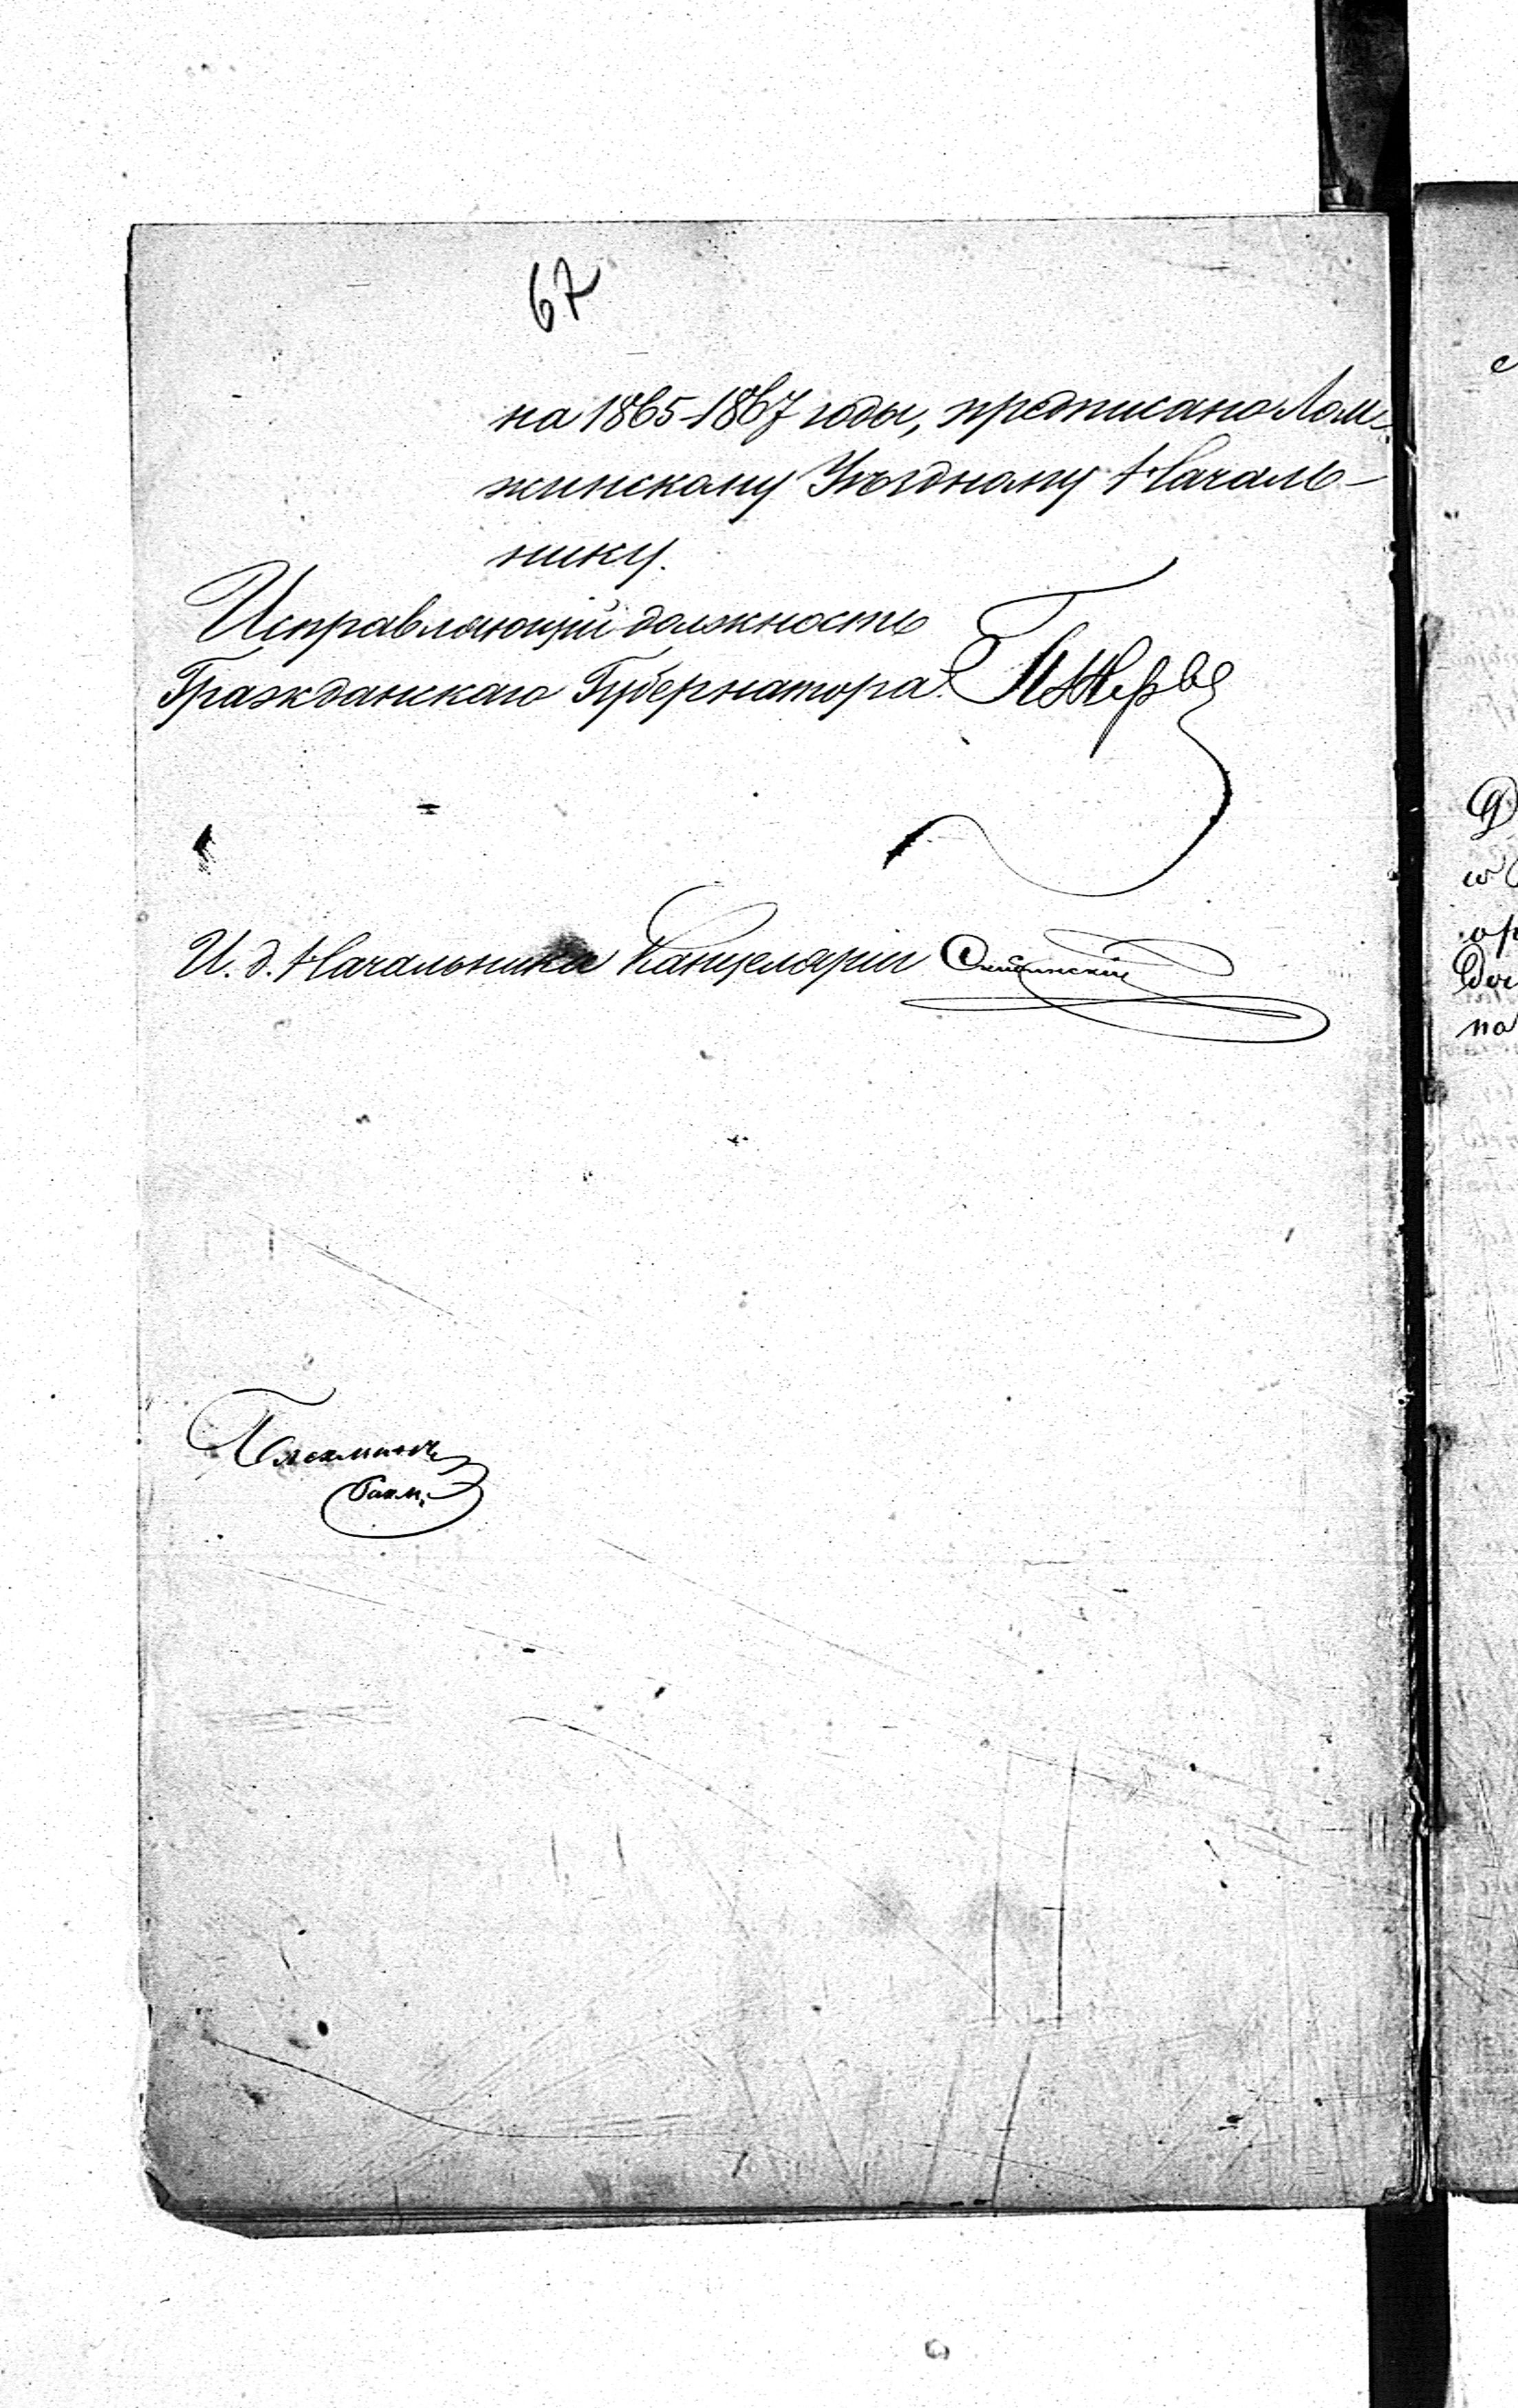 67
на 1865-1867 годы, предписано Лом-
жинскому Уѣздному Началь-
нику.
Исправляющій должность
Гражданскаго Губернатора:
И. д. Начальника Канцеляріи